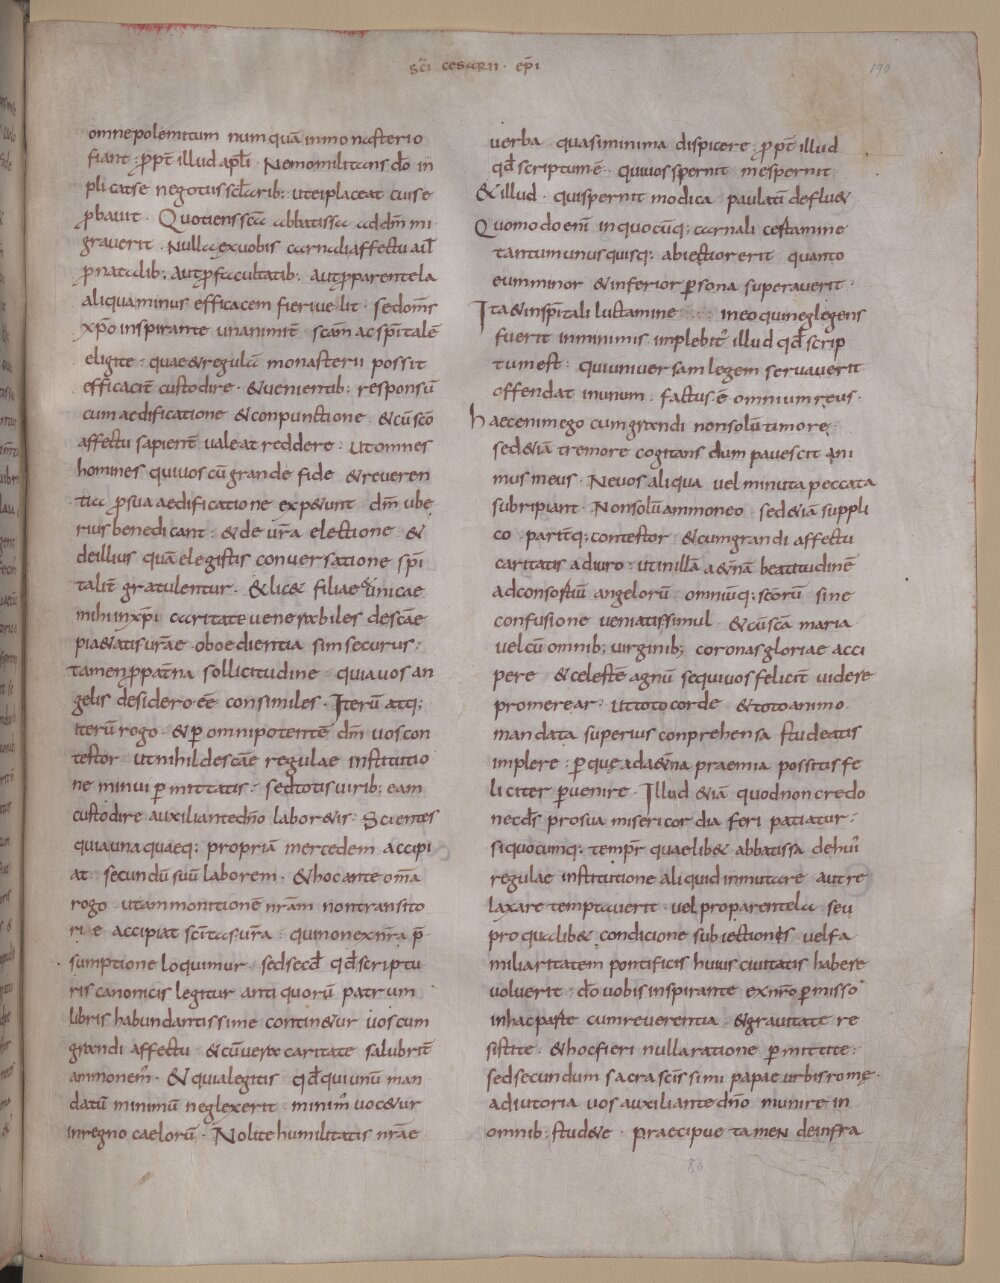 sc̄i cesarii · ep̄i
190
omnepolemitum numquā inmonasterio
fiant · ꝓpt̄ illud apl̄i · Nemomilitans dō in
plicat se negotiis sc̄larib; uteiplaceat cuise
ꝓbauit · Quotienssc̄a abbatissa addm̄ mi
grauerit · Nulla exuobis carnali affectu aut
ꝓnatalib; aut ꝓfacultatib; aut ꝓparentela
aliquaminus efficacem fieriuelit · sedom̄s
xp̄o inspirante unanimit̄ sc̄am ac sp̄italē
eligite · quae & regulā monasterii possit
efficacit̄ custodire · & uenientib; responsū
cum aedificatione & conpunctione & cū sc̄o
affectu sapient̄ ualeat reddere · Ut omnes
homines qui uos cū grande fide & reueren
tia ꝓ sua aedificatione exp&unt dm̄ ube
rius benedicant · & de ur̄a electione &
de illius quā elegistis conuersatione sp̄i
talit̄ gratulentur · & lic& filiae unicae
mihi in xp̄i caritate uenerabiles de sc̄ae
pi&atis ur̄ae oboedientia sim securus ·
tamen ꝓ pat̄na sollicitudine quia uos an
gelis desidero eē consimiles · Iterū atq;
iterū rogo · & ꝑ omnipotentē dm̄ uos con
testor ut nihil de sc̄ae regulae institutio
ne minui ꝑmittatis · sed totis uirib; eam
custodire auxiliante dn̄o labor&is · Scientes
quia unaquaeq; propriā mercedem accipi
at secundū suū laborem · & hoc ante om̄a
rogo ut ammonitionē nr̄am non transito
rie accipiat sc̄itas ur̄a · qui non ex nr̄a p̄
sumptione loquimur · sed secd̄ qd̄ scriptu
ris canonicis legitur antiquorū patrum
libris habundantissime contin&ur uos cum
grandi affectu & cū uera caritate salubrit̄
ammonem̄ · Et quia legitis qd̄ qui unū man
datū minimū neglexerit minim̄ uoc&ur
in regno caelorū · Nolite humilitatis nr̄ae
uerba quasi minima dispicere · ꝓpt̄ illud
qd̄ scriptum ē · qui uos spernit me spernit ·
& illud · qui spernit modica paulatī deflu&
Quomodo enī in quocūq; carnali certamine
tantum unusquisq; abiectior erit quanto
eum minor & inferior ꝑsona superauerit ·
Ita & in sp̄itali luctamine in eo qui neglegens
fuerit in minimis implebit̄ illud qd̄ scrip
tum est · qui uniuersam legem seruauerit
offendat in unum · factus ē omnium reus ·
haec enim ego cum grandi non solū timore
sed &iā tremore cogitans dum pauescit ani
mus meus · Ne uos aliqua uel minuta peccata
subripiant · Non solū ammoneo sed &iā suppli
co parit̄q; contestor & cum grandi affectu
caritatis adiuro · ut in illā a&nā beatitudinē
ad consortiū angelorū omniūq; sc̄orū sine
confusione ueniatis simul & cū sc̄a maria
uel cū omnib; uirginib; coronas gloriae acci
pere & celestē agnū sequi uos felicit̄ uidere
promerear · ut toto corde & toto animo
mandata superius conprehensa studeatis
implere · ꝑ quę ad a&̄na praemia possitis fe
liciter ꝑuenire · Illud &iā quod non credo
nec ds̄ pro sua misericordia feri patiatur ·
si quocumq; tempr̄ quaelib& abbatissa de hui᷒
regulae institutione aliquid inmutare aut re
laxare temptauerit · uel pro parentela seu
pro qualib& condicione subiectionis uel fa
miliaritatem pontificis huius ciuitatis habere
uoluerit · dō uobis inspirante ex nr̄o ꝑmisso
in hac parte cum reuerentia & grauitate re
sistite · & hoc fieri nulla ratione ꝑmittite ·
sed secundum sacra sc̄issimi papae urbis romę ·
adiutoria uos auxiliante dn̄o munire in
omnib; stud&e · praecipue tamen de infra